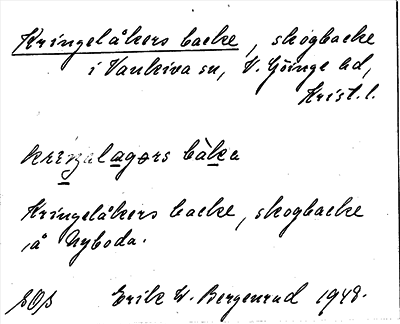 Kringelåkers backe, skogbacke
i Vankiva sn, V. Göinge hd,
Krist. l.
kriŋalagərs bàka
Kringelåkers backe, skogbacke
å Nyboda.
Erik W. Bergenrud 1948.